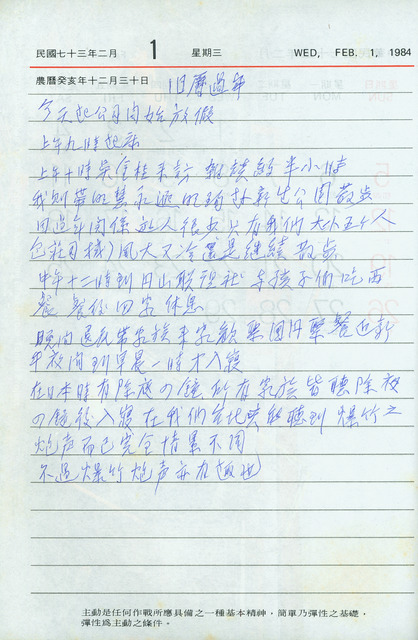 民國七十三年二月 1 星期三 WED, FEB. 1, 1984
農曆癸亥年十二月三十日 旧曆過年
今天起公司内始放假
上午九時起床
上午十時吳金桂來訪 半小時
我則帶明慧永 明 新生公園散步
因過年関係 人很少只有我們大小五個人
風大又冷還是継続散步
中午十二時到円山聯誼社 与孩子们吃西
餐 餐後回家休息
晚间 家族來家歡聚團円聚餐
半夜间到早晨一時才入寢
在日本時有除夜の鐘所有家族皆聽除夜
の鐘後入寢在我們台北 聽到爆竹之
炮声而已完全情景不同
不過爆竹炮声亦有趣也
主動是任何作戰所應具備之一種基本精神，簡單乃彈性之基礎，
彈性爲主動之條件。